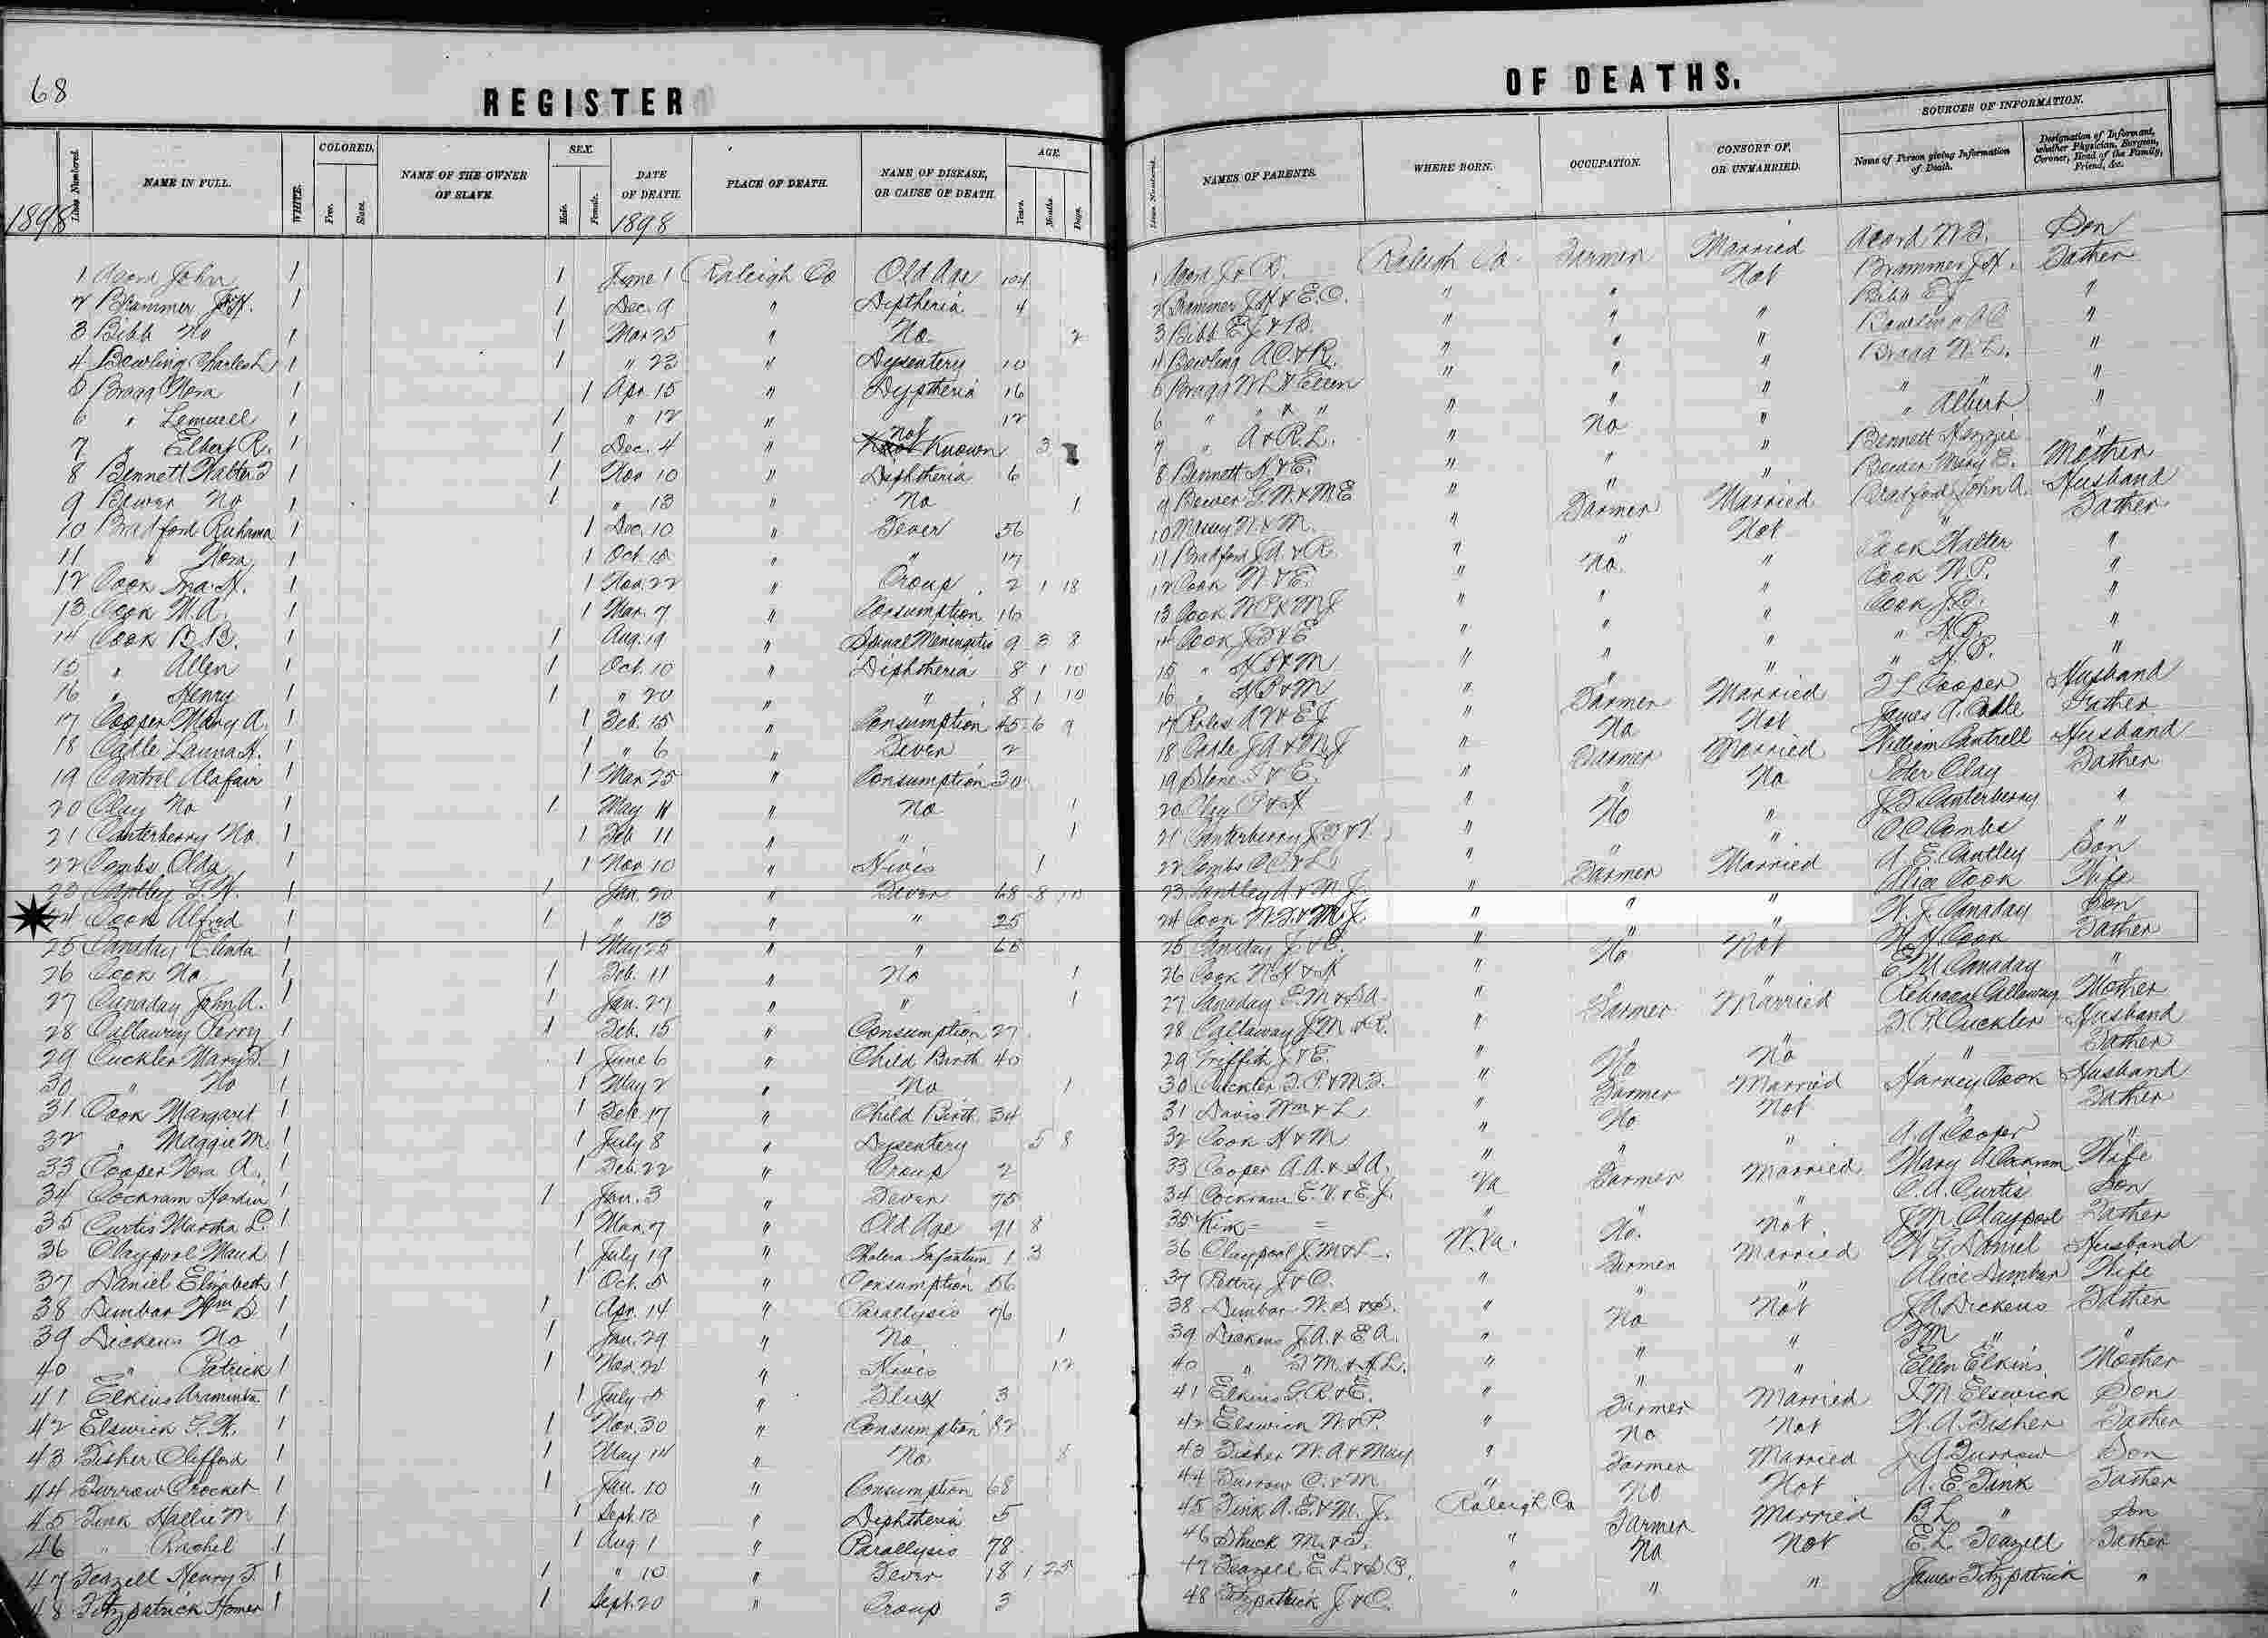 68
REGISTER OF DEATHS.
1898
Lines Numbered.
NAME IN FULL.
WHITE.
COLORED.
Free.
Slave.
NAME OF THE OWNER OF SLAVE.
SEX.
Male.
Female.
DATE OF DEATH.
1898
PLACE OF DEATH.
NAME OF DISEASE, OR CAUSE OF DEATH.
AGE.
Years.
Months.
Days.
Lines Numbered.
NAMES OF PARENTS.
WHERE BORN.
OCCUPATION.
CONSORT OF, OR UNMARRIED.
SOURCES OF INFORMATION.
Name of Person giving Information of Death.
Designation of Informant, whether Physician, Surgeon, Coroner, Head of the Family, Friend, &c.
1 Acord John 1 1 June 1 Raleigh Co Old Age 104
2 Brammer J.H. 1 1 Dec. 9 " Diptheria 4
3 Bibb No 1 1 Mar 25 " No 2
4 Bowling Charles L 1 1 " 23 " Dysentery 10
5 Bragg Nora 1 1 Apr. 15 " Dyptheria 16
6 " Lemuell 1 1 " 12 " " 12
7 " Elbert R. 1 1 Dec. 4 " Not Known 3
8 Bennett 1 1 Nov 10 " Diphtheria 6
9 Bower No 1 1 " 13 " No 1
10 Bradford Ruhama 1 1 Dec. 10 " Fever 56
11 " Nora 1 1 Oct. " " 17
12 Cook Ina H. 1 1 Nov. 22 " Croup 2 1 18
13 Cook M.A. 1 1 Mar. 7 " Consumption 16
14 Cook B.B. 1 1 Aug. 19 " Spinal Meningitis 9 3 8
15 " Allen 1 1 Oct. 10 " Diphtheria 8 1 10
16 " Henry 1 1 " 20 " " 8 1 10
17 Cooper Mary A. 1 1 Feb. 15 " Consumption 45 6 9
18 Calle 1 1 " 6 " Fever 2
19 Cantrol Alafair 1 1 Mar. 25 " Consumption 30
20 Clay No 1 1 May 11 " No 1
21 Canterberry No. 1 1 Feb 11 " " 1
22 Combs Olda 1 1 Nov. 10 " Hives 1
23 Cantley 1 1 Jan. 20 " Fever 68 8 10
24 Cook Alfred 1 1 " 13 " " 25
25 Canaday Clinda 1 1 May 25 " " 66
26 Cook No 1 1 Feb. 11 " No 1
27 Canaday John A. 1 1 Jan. 27 " " 1
28 Callaway Perry 1 1 Feb. 15 " Consumption 27
29 Cuckler Mary F. 1 1 June 6 " Child Birth 40
30 " No 1 1 May 2 " No 1
31 Cook Margaret 1 1 Feb. 17 " Child Birth 34
32 " Maggie M. 1 1 July 8 " Dysentery 5 8
33 Cooper Nora A. 1 1 Feb. 22 " Croup 2
34 Cochram 1 1 Jan. 3 " Fever 75
35 Curtis Martha L. 1 1 Mar. 7 " Old Age 91 8
36 Claypool Maud 1 1 July 19 " Cholera Infantum 1 3
37 Daniel Elizabeth 1 1 Oct. 5 " Consumption 56
38 Dunbar Wm 1 1 Apr. 14 " Parallysis 76
39 Dickens No 1 1 Jan. 29 " No 1
40 " Patrick 1 1 Nov. 22 " Hives 12
41 Elkins Araminta 1 1 July " Flux 3
42 Elswick G.W. 1 1 Nov. 30 " Consumption 82
43 Fisher Clifford 1 1 May 14 " No 8
44 Furrow Crocket 1 1 Jan. 10 " Consumption 68
45 Fink Hallie M 1 1 Sept. 13 " Diphtheria 5
46 " Rachel 1 1 Aug 1 " Parallysis 78
47 Feazell Henry F. 1 1 " 10 " Fever 18 1 25
48 Fitzpatrick Homer 1 1 Sept. 20 " Croup 3
1 Acord Raleigh Co. Farmer Married Acord W.F. Son
2 Brammer J.H. & E.C. " " Not Brammer J.H. Father
3 Bibb E.J. & B. " " " Bibb E.J. "
4 Bowling A.C. & R. " " " Bowling A.C. "
5 Bragg W.L. & Ellen " " " Bragg W.L. "
6 " " & " " " " " " "
7 " A & R.L. " No " " Albert "
8 Bennett " " " Bennett "
9 Bower G.W. & M.E. " " " Bower Mary E. Mother
10 Massey W. & M. " Farmer Married Bradford John A. Husband
11 Bradford J.A. & R. " " Not " Father
12 Cook W. & E. " No " Cook Walter "
13 Cook W.P. & M.J. " " " Cook W.P. "
14 Cook J.F. & E " " " Cook J.F. "
15 " " " "
16 " " " "
17 A.V. & E.J. " Farmer Married F.L. Cooper Husband
18 J.A. & M.J. " No Not James A. Father
19 " Farmer Married William Cantrell Husband
20 Clay P. & H " " No Peter Clay Father
21 Canterberry " No " J.F. Canterberry "
22 Combs C.C. & L. " " " C.C. Combs "
23 Cantley A. & M.J. " Farmer Married A.E. Cantley Son
24 Cook W.F. & M.J. " " " Alice Cook Wife
25 Canaday J. & C. " " " Canaday Son
26 Cook W.H. & " No Not W.H. Cook Father
27 Canaday E.M. & S.A. " " " E.M. Canaday "
28 Callaway J.M. & R. " Farmer Married Rebecca Callaway Mother
29 Griffith J. & E. " " " F.P. Cuckler Husband
30 Cuckler F.P. & M.F. " No No " Father
31 Davis Wm & L. " Farmer Married Harvey Cook Husband
32 Cook H & M " No Not " Father
33 Cooper A.A. & S.A. " " " A.A. Cooper "
34 Cochram E.V. & E.J. Va Farmer Married Mary A Cochram Wife
35 " " " C.A. Curtis Son
36 Claypool J.M. & L. W.Va. No. Not J.M. Claypool Father
37 Pettry J. & C. " Farmer Married Daniel Husband
38 Dunbar " " " Alice Dunbar Wife
39 Dickens J.A. & E.A. " No Not J.A. Dickens Father
40 " F.M. & H.L. " " " F.M. " "
41 Elkins G.R. & E. " " " Ellen Elkins Mother
42 Elswick W. & P. " Farmer Married Elswick Son
43 Fisher W.A. & Mary " No Not W.A. Fisher Father
44 Furrow C. & M. " Farmer Married Furrow Son
45 Fink A.E. & M.J. Raleigh Co No Not A.E. Fink Father
46 " Farmer Married B.L. " Son
47 Feazell E.L. & " No Not E.L. Feazell Father
48 Fitzpatrick J. & C. " " " James Fitzpatrick "